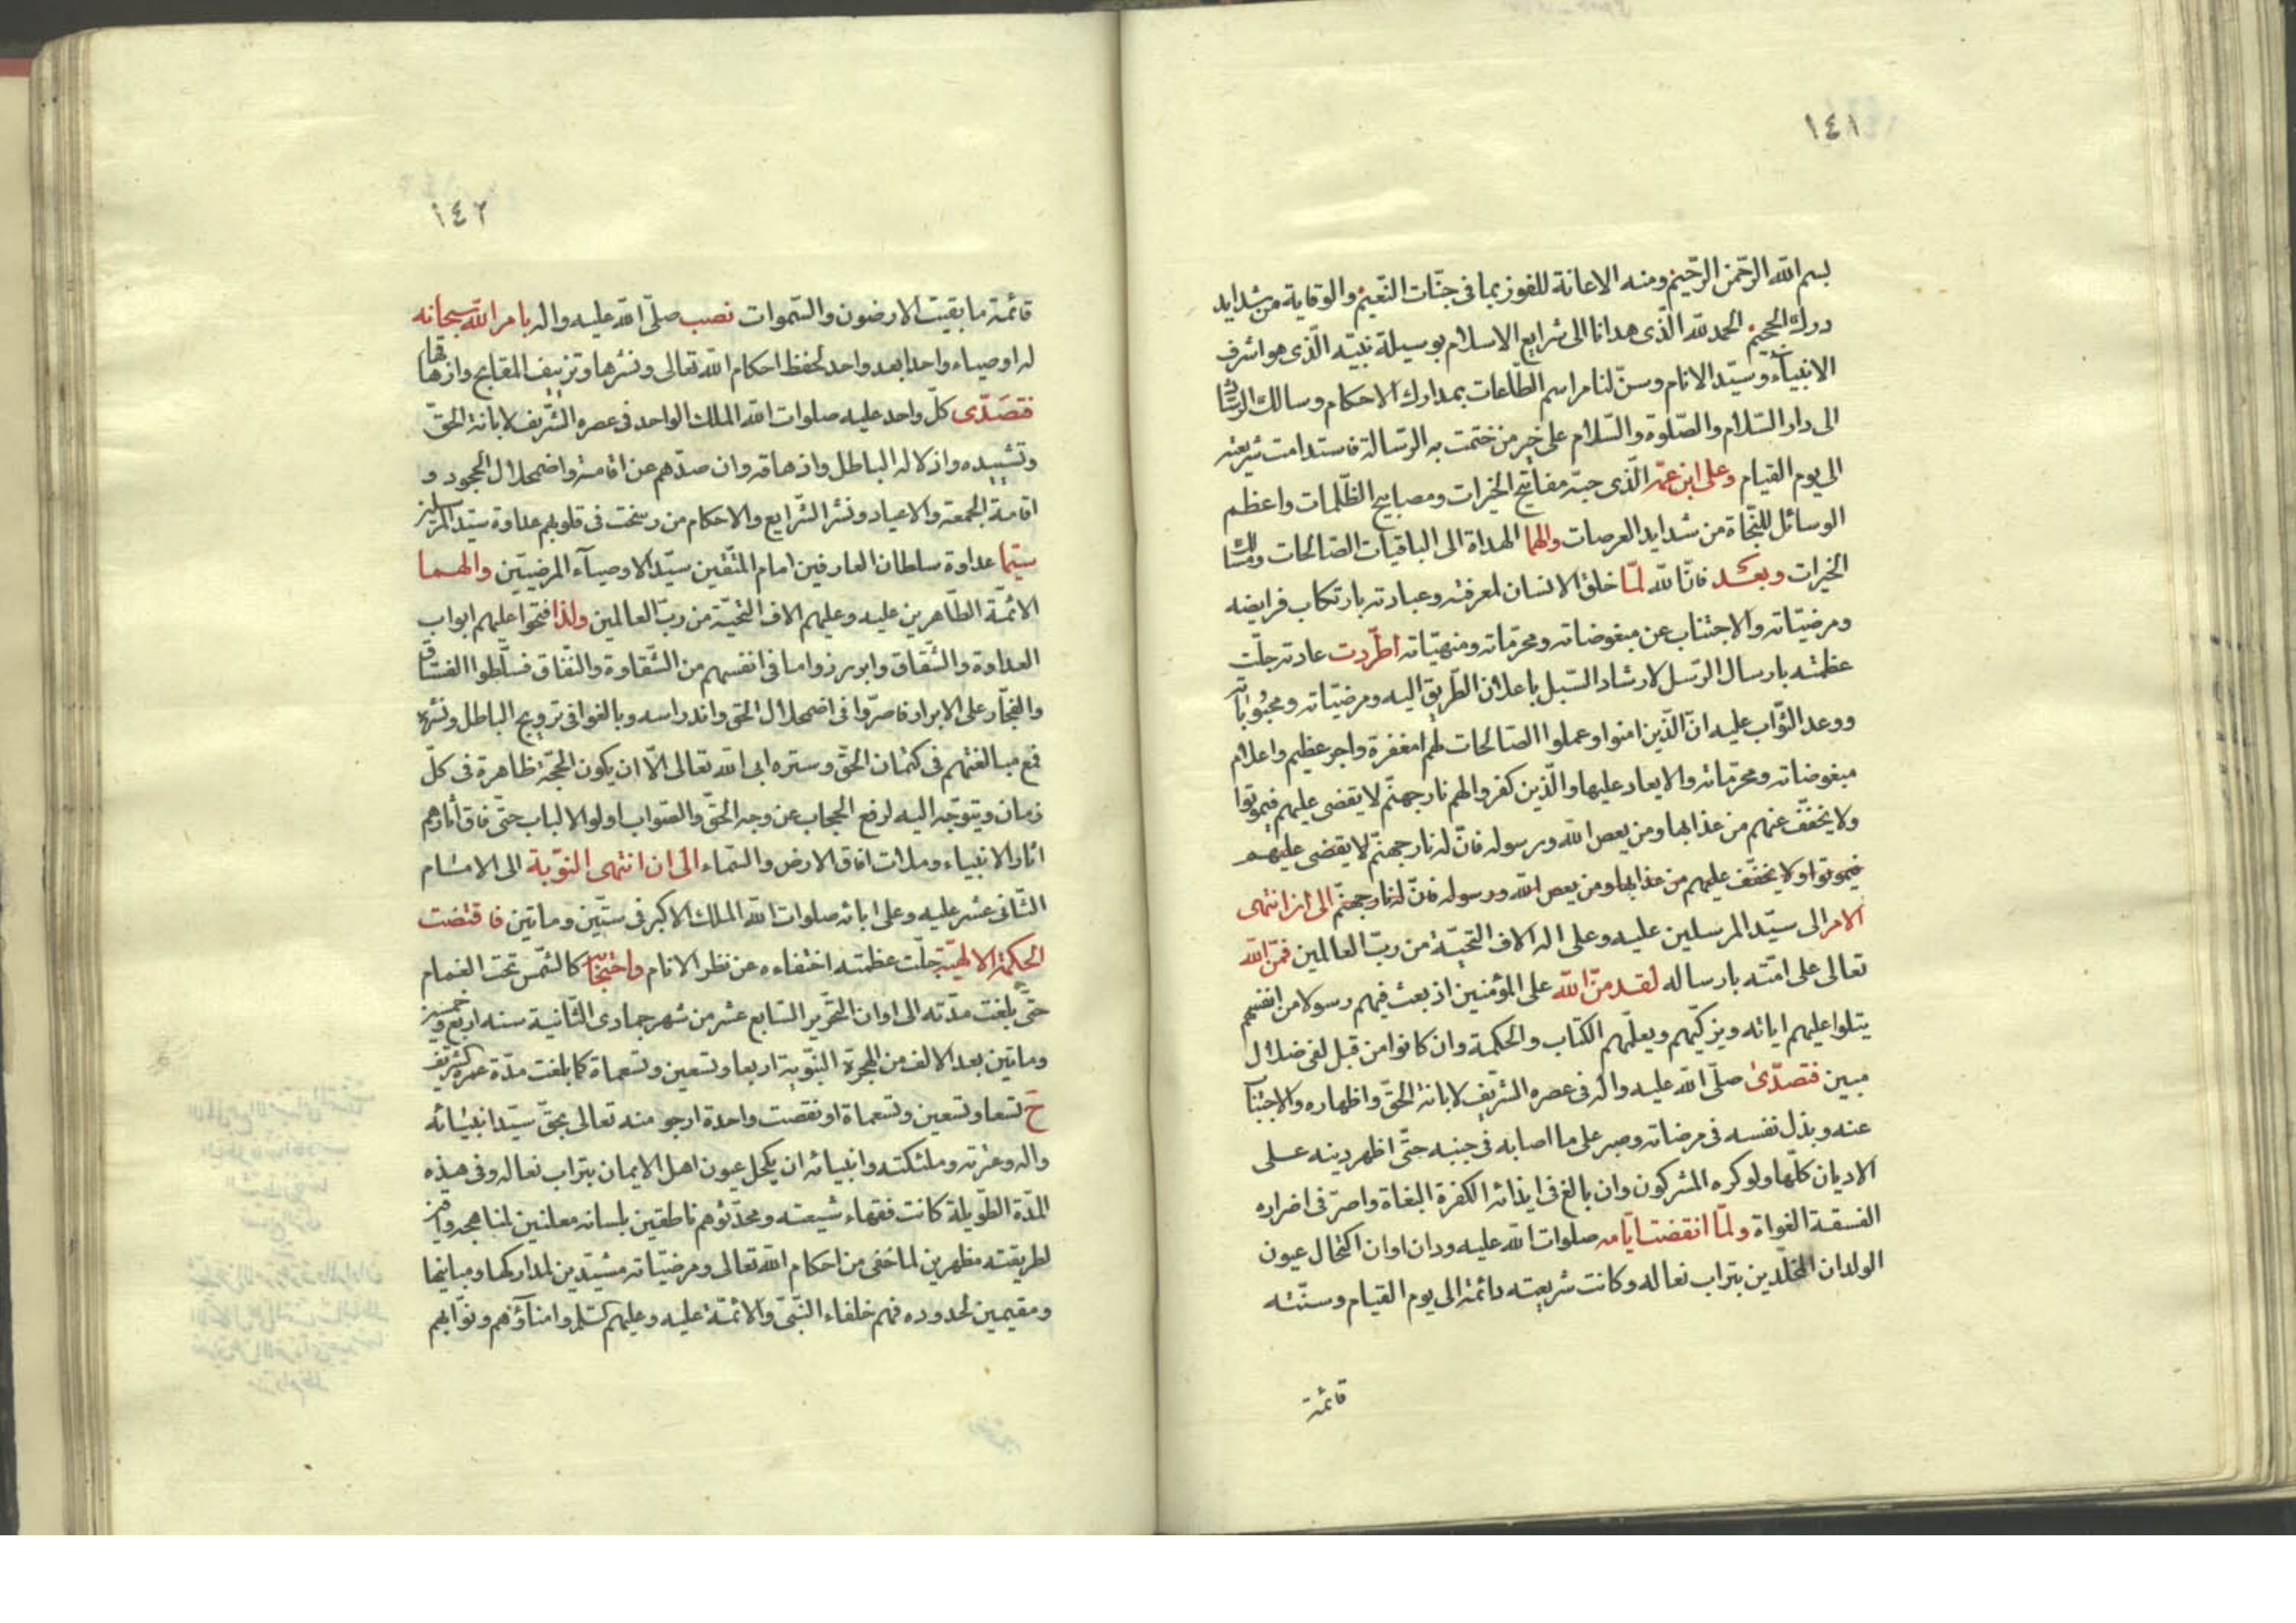 ١٤١
بسم الله الرّحمن الرّحيم ومنه الاعانة للفوز بما فى جنّات النّعيم والوقاية من شدايد
درك الجحيم الحمد لله الّذى هدانا الى شرايع الاسلام بوسيلة نبيّه الّذى هو اشرف
الانبيآء وسيّد الانام وسنّ لنا مراسم الطّاعات بمدارك الاحكام ومسالك الرشاد
الى دار السّلام والصّلوة والسّلام على خير من ختمت به الرّسالة فاستدامت شريعته
الى يوم القيام وعلى ابن عمّه الّذى حبّه مفاتيح الخيرات ومصابيح الظّلمات واعظم
الوسائل للنّجاة من شدايد العرصات والهما الهداة الى الباقيات الصّالحات ومسالك
الخيرات وبعد فانّ الله لمّا خلق الانسان لمعرفته وعبادته بارتكاب فرايضه
ومرضيّاته والاجتناب عن مبغوضاته ومحرّماته ومنهيّاته اطّردت عادته جلّت
عظمته بارسال الرّسل لارشاد السّبل باعلان الطّريق اليه ومرضيّاته ومحبُوباته
ووعد الثّواب عليه انّ الّذين امنوا وعملوا الصّالحات لهم مغفرة واجر عظيم واعلام
مبغوضاته ومحرّماته والايعاد عليها والّذين كفروا لهم نار جهنّم لا يقضى عليهم فيموتوا
ولا يخفّف عنهم من عذابها ومن يعص الله ورسوله فانّ له نار جهنّم لا يقضى عليهم
فيموتوا ولا يخفّف عليهم من عذابها ومن يعص الله ورسوله فانّ له نار جهنّم الى ان انتهى
الامر الى سيّد المرسلين عليه وعلى اله الاف التّحيّة من ربّ العالمين فمنّ الله
تعالى على امّته بارساله لقد منّ الله على المؤمنين اذ بعث فيهم رسولا من انفسهم
يتلوا عليهم اياته ويزكّيهم ويعلّمهم الكتاب والحكمة وان كانوا من قبل لفى ضلال
مبين فتصدّى صلّى الله عليه واله فى عصره الشّريف لابانة الحقّ واظهاره والاجتناب
عنه وبذل نفسه فى مرضاته وصبر على ما اصابه فى جنبه حتّى اظهر دينه على
الاديان كلّها ولو كره المشركون وان بالغ فى ايذائه الكفرة البغاة واصرّ فى اضراره
الفسقة الغواة ولمّا انقضت ايّامه صلوات الله عليه ودان اوان اكتحال عيون
الولدان المخلّدين بتراب نعاله وكانت شريعته دائمة الى يوم القيام وسنّته
قائمة
١٤٢
قائمة ما بقيت الارضون والسّموات نصب صلّى الله عليه واله بامر الله سبحانه
له اوصياء واحدا بعد واحد لحفظ احكام الله تعالى ونشرها وتزييف المقابح وازهاقها
فتصَدّى كلّ واحد عليه صلوات الله الملك الواحد فى عصره الشّريف لابانة الحقّ
وتشييده واذلاله الباطل وازهاقه وان صدّهم عن اقامته واضمحلال الجحود و
اقامة الجمعة والاعياد ونشر الشّرايع والاحكام من رسخت فى قلوبهم عداوة سيّد المرسلين
سيّما عداوة سلطان العارفين امام المتّقين سيّد الاوصيآء المرضيّين والهما
الائمّة الطّاهرين عليه وعليهم الاف التّحيّة من ربّ العالمين ولذا فتحوا عليهم ابواب
العداوة والشّقاق وابرزوا ما فى انفسهم من الشّقاوة والنّفاق فسلّطوا الفسّاق
والفجّار على الابرار فاصرّوا فى اضمحلال الحقّ واندراسه وبالغوا فى ترويج الباطل ونشره
فمع مبالغتهم فى كتمان الحقّ وستره ابى الله تعالى الّا ان يكون الحجّة ظاهرة فى كلّ
زمان ويتوجّه اليه لرفع الحجاب عن وجه الحقّ والصّواب اولو الالباب حتّى فاق اثارهم
اثار الانبياء وملات افاق الارض والسّماء الى ان انتهى النّوبة الى الامام
الثّانى عشر عليه وعلى ابائه صلوات الله الملك الاكبر فى ستّين وماتين فاقتضت
الحكمة الالهيّة جلّت عظمته اختفاءه عن نظر الانام واحتجابه كالشّمس تحت الغمام
حتّى بلغت مدّته الى اوان التّحرير السّابع عشر من شهر جمادى الثّانية سنه اربع وخمسين
وماتين بعد الالف من الهجرة النّبوية اربعا وتسعين وتسعماة كما بلغت مدّة عمره الشريف
ح تسعا وتسعين وتسعماة او نقصت واحدة ارجو منه تعالى بحقّ سيّد انبيائه
واله وعترته وملئكته وانبيائه ان يكحل عيون اهل الايمان بتراب نعاله وفى هذه
المدّة الطّويلة كانت فقهاء شيعته ومحدّثوهم ناطقين بلسانه معلنين لمناهجه
لطريقته مظهرين لما خفى من احكام الله تعالى ومرضيّاته مشيّدين لمداركها ومبانيها
ومقيمين لحدوده فهم خلفاء النّبىّ والائمّة عليه وعليهم السّلم وامناؤهم ونوّابهم